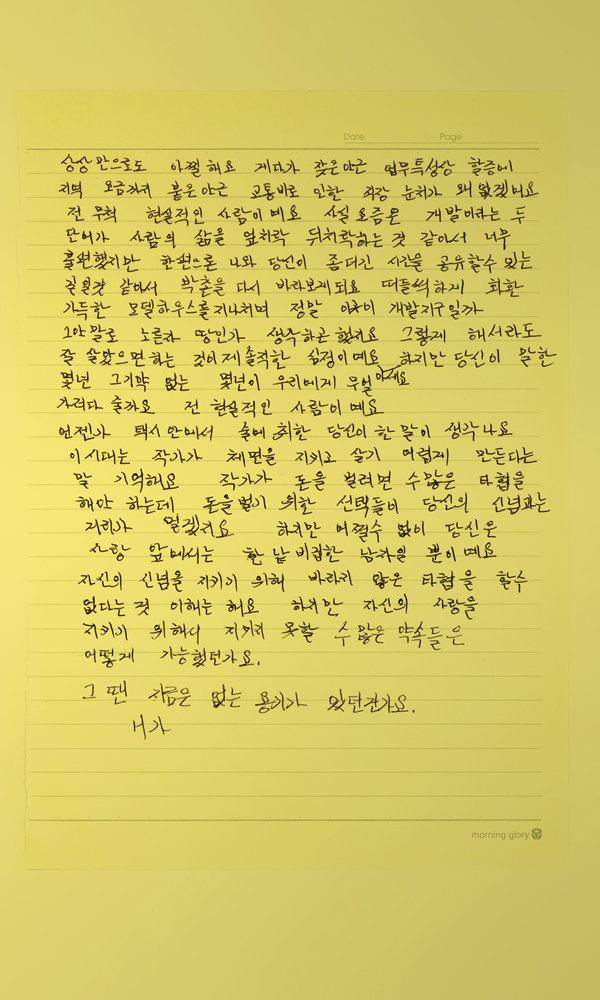 Date. Page.
상상 만으로도 아찔해요 게다가 잦은 야근 업무특성상 할증에
지역 요금까지 붙은 야근 교통비로 인한 직장 눈치가 왜 없겠어요
전 무척 현실적인 사람이예요 사실 요즘은 개발이라는 두
단어가 사람의 삶을 엎치락 뒤치락하는 것 같아서 너무
불편했지만 한편으론 나와 당신이 좀더긴 시간을 공유할수 있는
길일것 같아서 박촌을 다시 바라보게되요 떠들썩하게 화환
가득한 모델하우스를지나치며 정말 이곳이 개발지구일까
그야말로 노른자 땅인가 생각하곤했어요 그렇게 해서라도
잘 살았으면 하는 것이 제 솔직한 심정이예요 하지만 당신이 말한
몇년 그 기약 없는 몇년이 우리에게 무얼 아세요
가져다 줄까요 전 현실적인 사람이예요
언젠가 택시 안에서 술에 취한 당신이 한 말이 생각나요
이 시대는 작가가 체면을 지키고 살기 어렵게 만든다는
말 기억해요 작가가 돈을 벌려면 수많은 타협을
해야 하는데 돈을 벌기 위한 선택들이 당신의 신념과는
거리가 멀겠지요 하지만 어쩔수 없이 당신은
사랑 앞에서는 한 낱 비겁한 남자일 뿐이예요
자신의 신념을 지키기 위해 바라지 않은 타협을 할수
없다는 것 이해는 해요 하지만 자신의 사랑을
지키기 위해서 지키지 못할 수 많은 약속들은
어떻게 가능했던가요.
그 땐 지금은 없는 용기가 있던건가요.
H가
morning glory